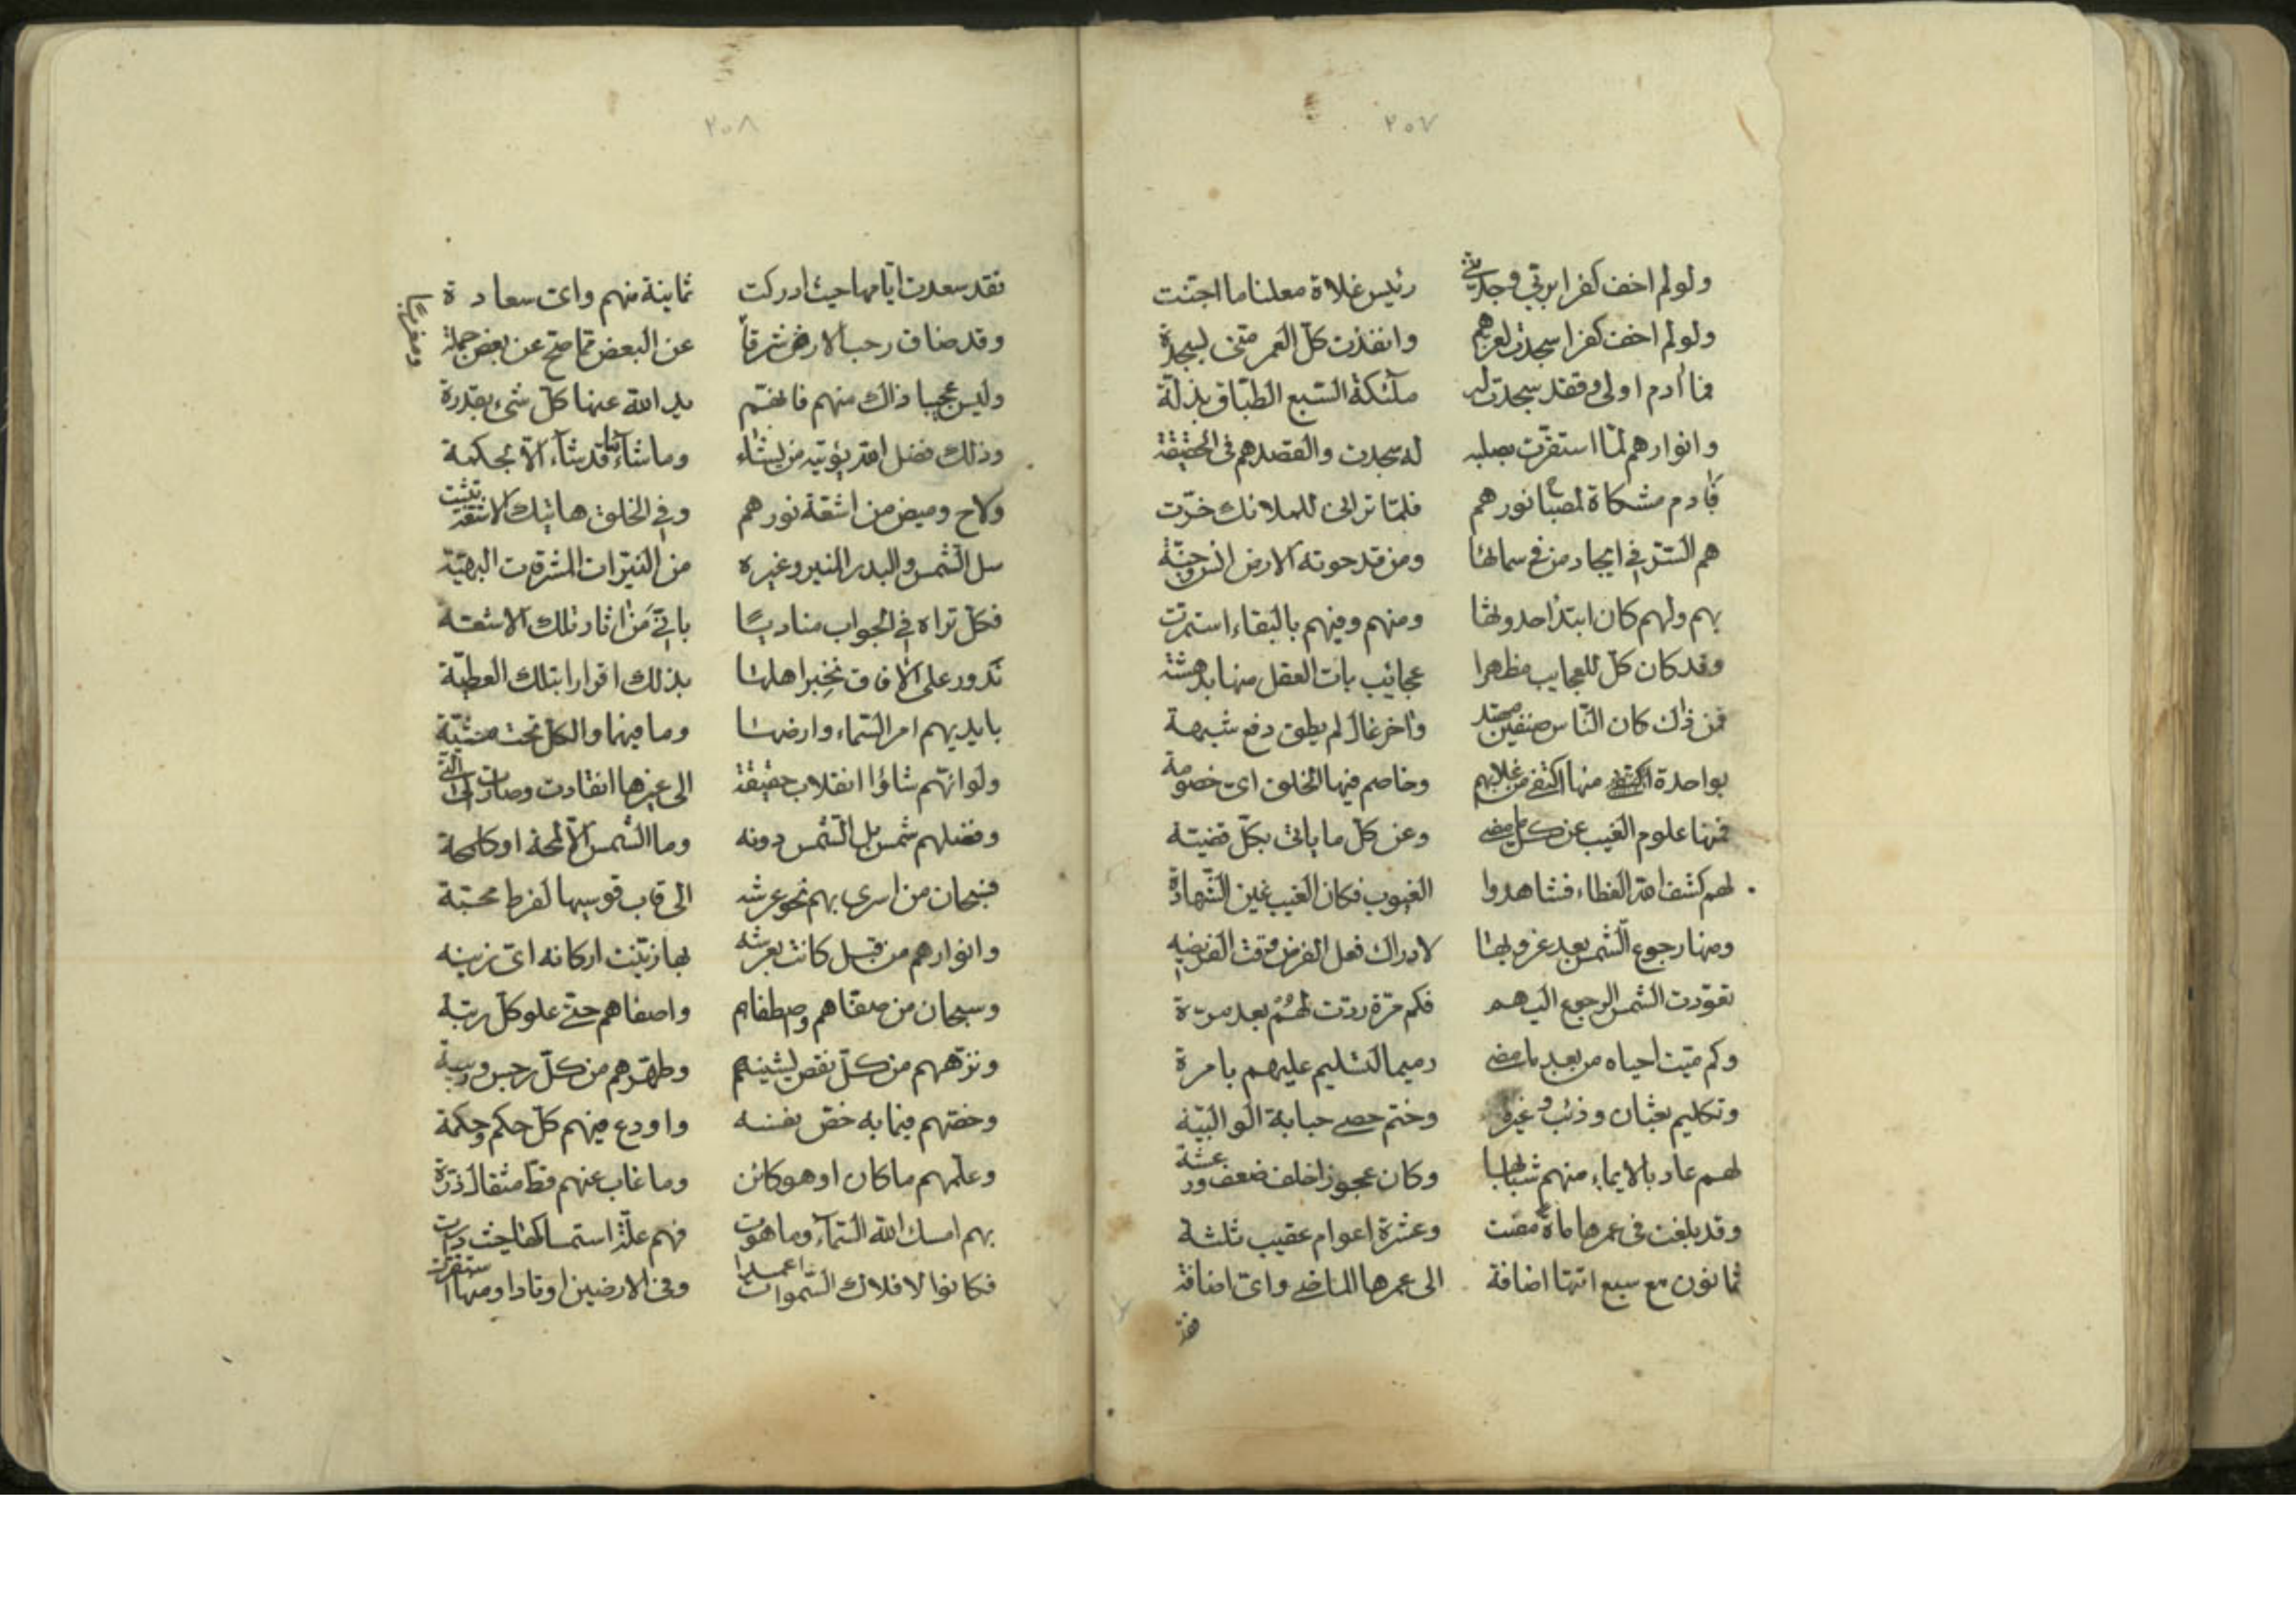 ٢٥٧
ولو لم اخف كفرا بربي وجدتني رئيس غلاة معلنا ما اجنت
ولو لم اخف كفرا سجدت لعزهم وانفذت كل العمر متى بسجدة
فما آدم اولى وقد سجدت له ملئكة السبع الطباق بذلة
وانوارهم لما استقرت بصلبه له سجدت والقصد هم في الحقيقة
فآدم مشكاة لمصبا نورهم فلما ترائ للملائك خرت
هم السر في ايجاد من في سمائها ومن قد حوته الارض انس وجنة
بهم ولهم كان ابتدا حدوثها ومنهم وفيهم بالبقاء استمرت
وقد كان كل للعجايب مظهرا عجائب بات العقل منها بدهشة
فمن ذاك كان الناس صنفين وآخر غال لم يطق دفع شبهة
بواحدة منها اكتفى من غلابهم وخاصم فيها الخلق اي خصومة
فمنها علوم الغيب عن كل ما مضى وعن كل ما ياتى بكل قضية
لهم كشف الله الغطاء فشاهدوا الغيوب فكان الغيب عين الشهادة
ومنها رجوع الشمس بعد غروبها لادراك فعل الفرض وقت الفريضة
تعودت الشمس الرجوع اليهم فكم مرة ردت لهم بعد مرة
وكم ميت احياه من بعد ما مضى رميما التسليم عليهم بامرة
وتكليم ثعبان وذئب وغيره وختم حصى حبابة الوالبية
لهم عاد بالايماء منهم شبابها وكان عجوزا خلف ضعف ورعشة
وقد بلغت في عمرها مائة مضت وعشرة اعوام عقيب ثلثة
ثمانون مع سبع اتتها اضافة الى عمرها الماضي واى اضافة
٢٥٨
فقد سعدت ايامها حيث ادركت ثمانية منهم واى سعادة
وقد ضاق رحب الارض شرقا ومغربا عن البعض مما صح عن بعض جملة
وليس عجيبا ذاك منهم فانهم يد الله عنها كل شىء بقدرة
وذلك فضل الله يؤتيه من يشاء وما شاء ما قد شاء الا بحكمة
ولاح وميض من اشعة نورهم وفي الخلق هاتيك الاشعة بثت
سل الشمس والبدر المنير وغيره من النيرات المشرقات البهية
فكل تراه في الجواب مناديا باني من آثار تلك الاشعة
تدور على الآفاق نخبر اهلها بذلك اقرارا بتلك العطية
بايديهم امر السماء وارضها وما فيهما والكل تحت مشية
ولو انهم شاؤا انقلاب حقيقة الى غيرها انقادت وصارت الى التى
وفضلهم شمس بل الشمس دونه وما الشمس الا لمحة او كلمحة
فسبحان من اسرى بهم نحو عرشه الى قاب قوسيها لفرط محبة
وانوارهم من قبل كانت بعرشه بها زينت اركانه اى زينه
وسبحان من صفاهم واصطفاهم واصفاهم حتى علو كل رتبة
ونزههم من كل نقص يشينهم وطهرهم من كل رجس وريبة
وخصهم فيما به خص نفسه واودع فيهم كل حكم وحكمة
وعلمهم ما كان او هو كائن وما غاب عنهم قط مثقال ذرة
بهم امسك الله السماء وما هوت فهم علة استمساكها حيث دارت
فكانوا لافلاك السموات اعمدا وفى الارضين اوتادا ومنها استقرت